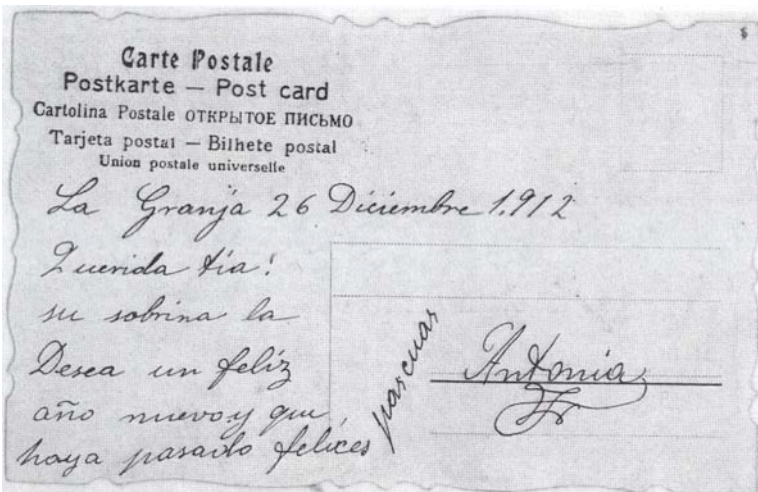 Carte Postale
Postkarte — Post card
Cartolina Postale ОТКРЫТОЕ ПИСЬМО
Tarjeta postal — Bilhete postal
Union postale universelle
La Granja 26 Diciembre 1.912
Querida tía!
su sobrina la
Desea un felíz
año nuevo y que
haya pasado felices
pascuas
Antonia